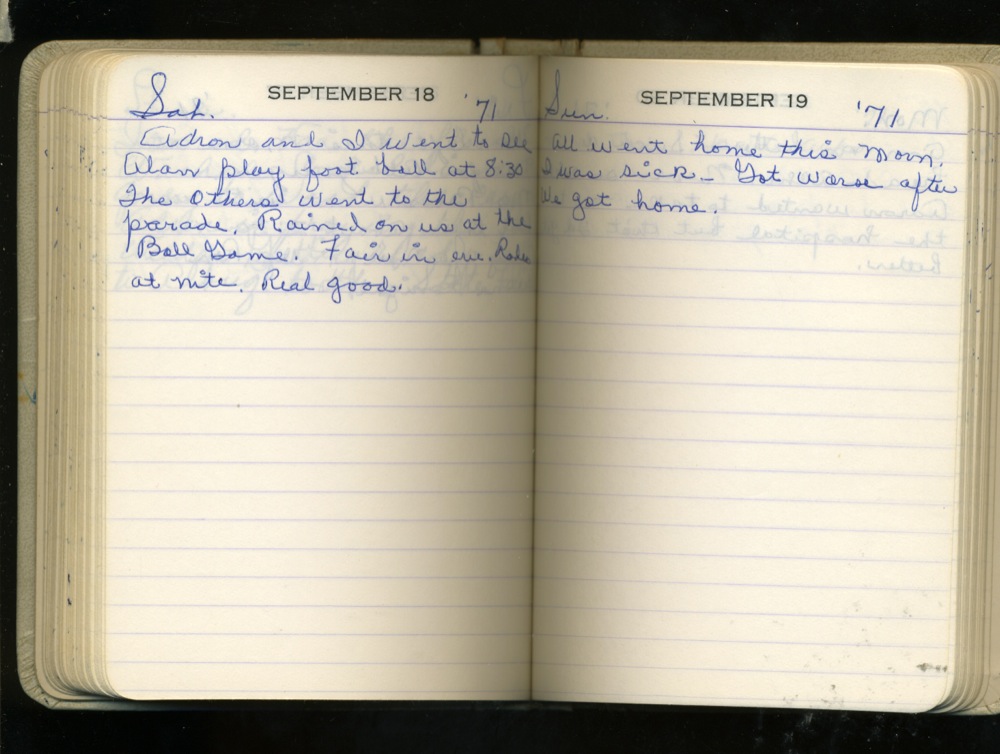 SEPTEMBER 18
Sat. '71
Adron and I went to see
Alan play foot ball at 8:30
The Others went to the
parade. Rained on us at the
Ball Game. Fair in eve. Rodeo
at nite. Real good.
SEPTEMBER 19
Sun. '71
All went home this morn.
I was sick - Got worse after
We got home.